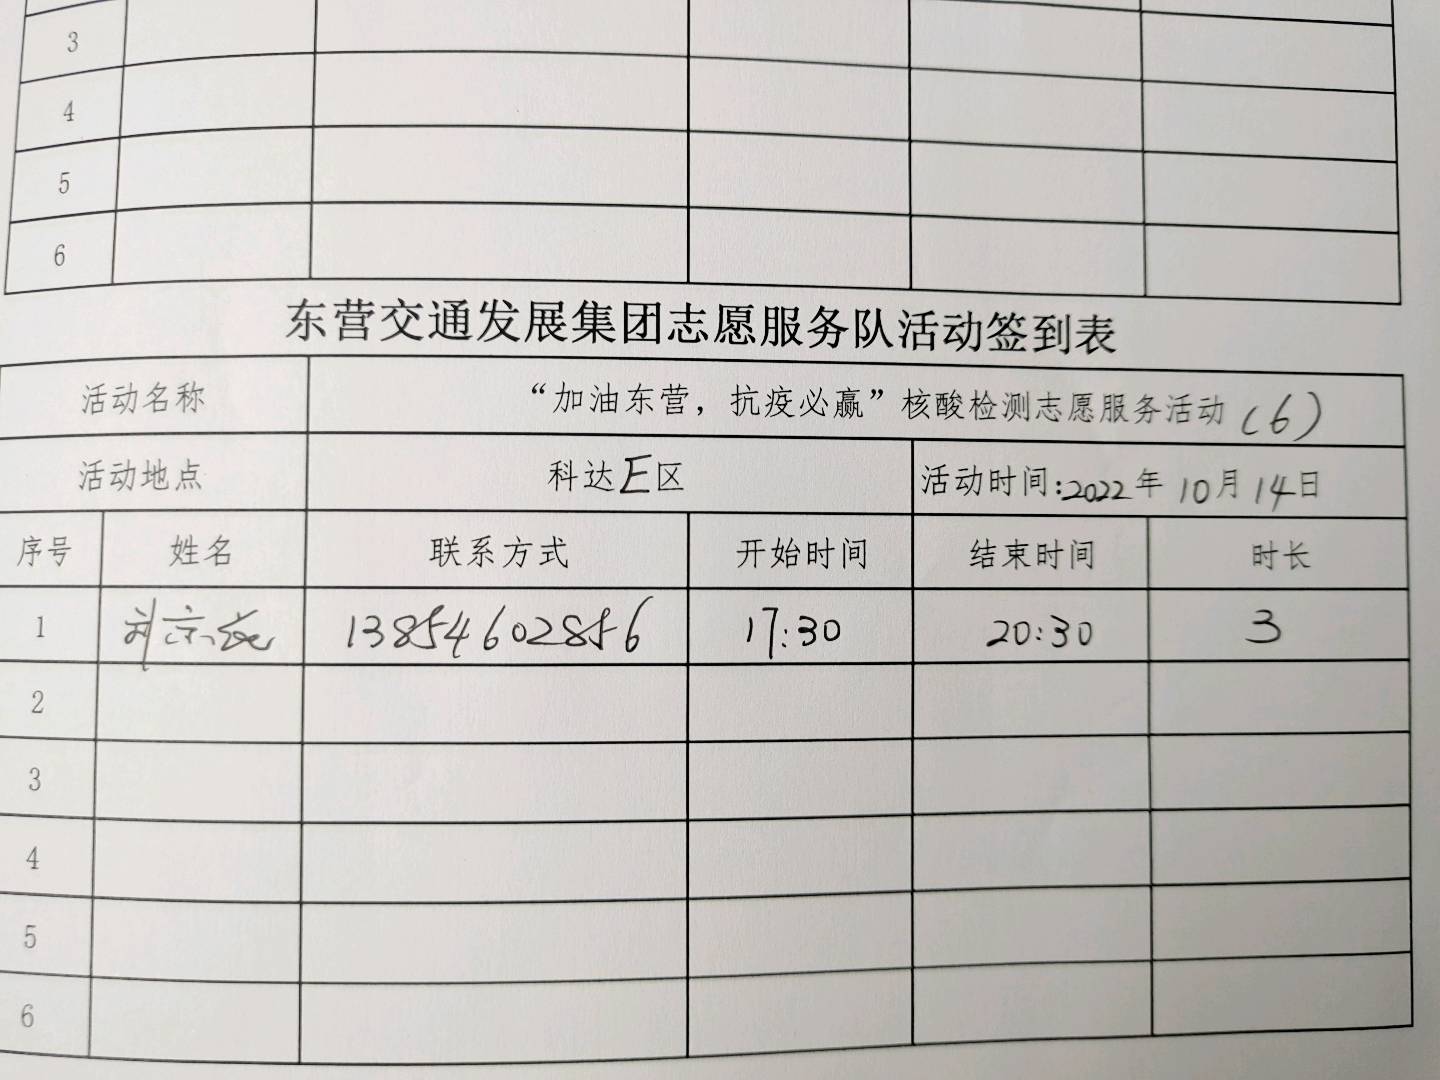 3
4
5
6
东营交通发展集团志愿服务队活动签到表
活动名称 “加油东营，抗疫必赢”核酸检测志愿服务活动(6)
活动地点 科达E区 活动时间:2022年10月14日
序号 姓名 联系方式 开始时间 结束时间 时长
1 13854602856 17:30 20:30 3
2
3
4
5
6